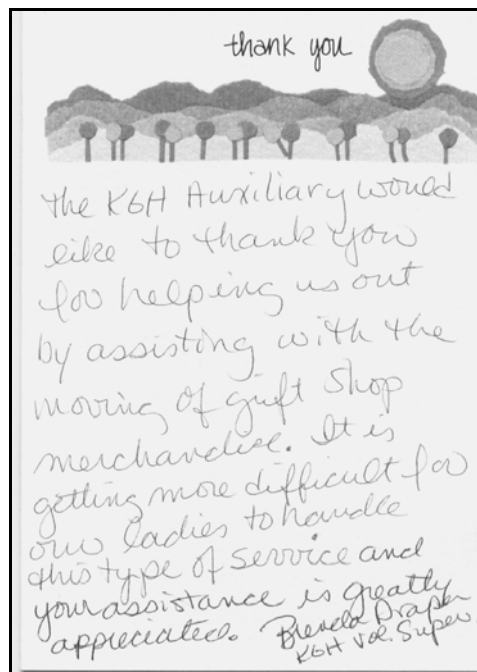 thank you
the KGH Auxiliary would
like to thank you
for helping us out
by assisting with the
moving of gift shop
merchandise. It is
getting more difficult for
our ladies to handle
this type of service and
your assistance is greatly
appreciated. Brenda Draper
KGH Vol. Super.